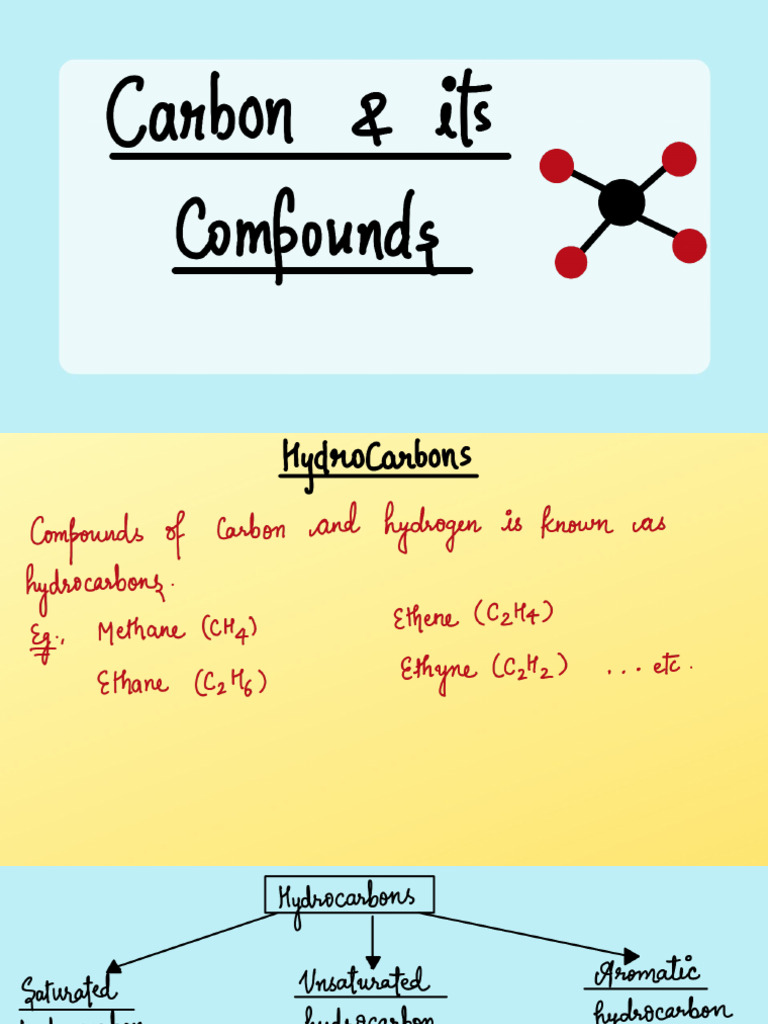 Carbon & its
Compounds
HydroCarbons
Compounds of carbon and hydrogen is known as
hydrocarbons.
Eg:, Methane (CH4) Ethene (C2H4)
Ethane (C2H6) Ethyne (C2H2) ... etc.
Hydrocarbons
Saturated Unsaturated Aromatic
hydrocarbon hydrocarbon